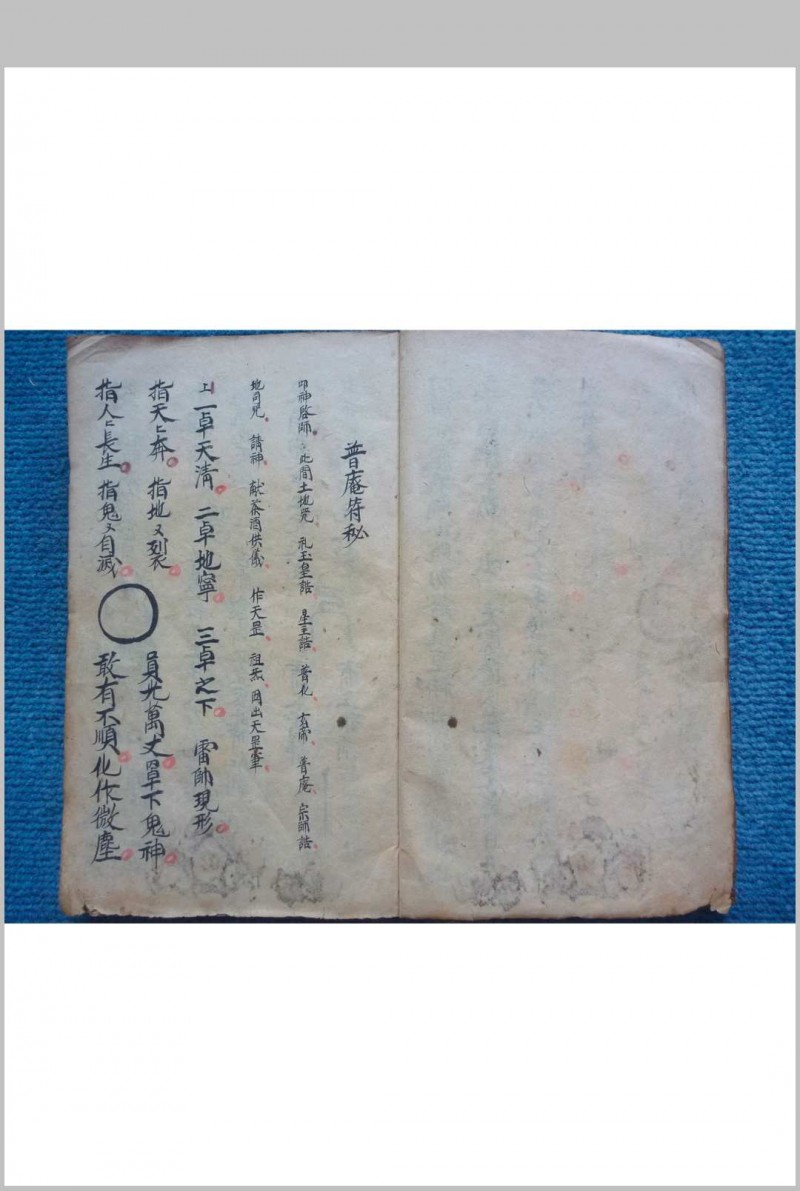 普庵符秘
叩神啓師 此間土地咒 礼玉皇誥 星主誥 普化 玄帝 普庵 宗師誥
地司咒 請神 献茶酒供儀 作天罡 祖炁 罡筆
上 一卓天清 二卓地寧 三卓之下 雷帥現形
指天〻奔 指地又裂 員光萬丈罩下鬼神
指人〻長生 指鬼又自滅 敢有不順化作微塵